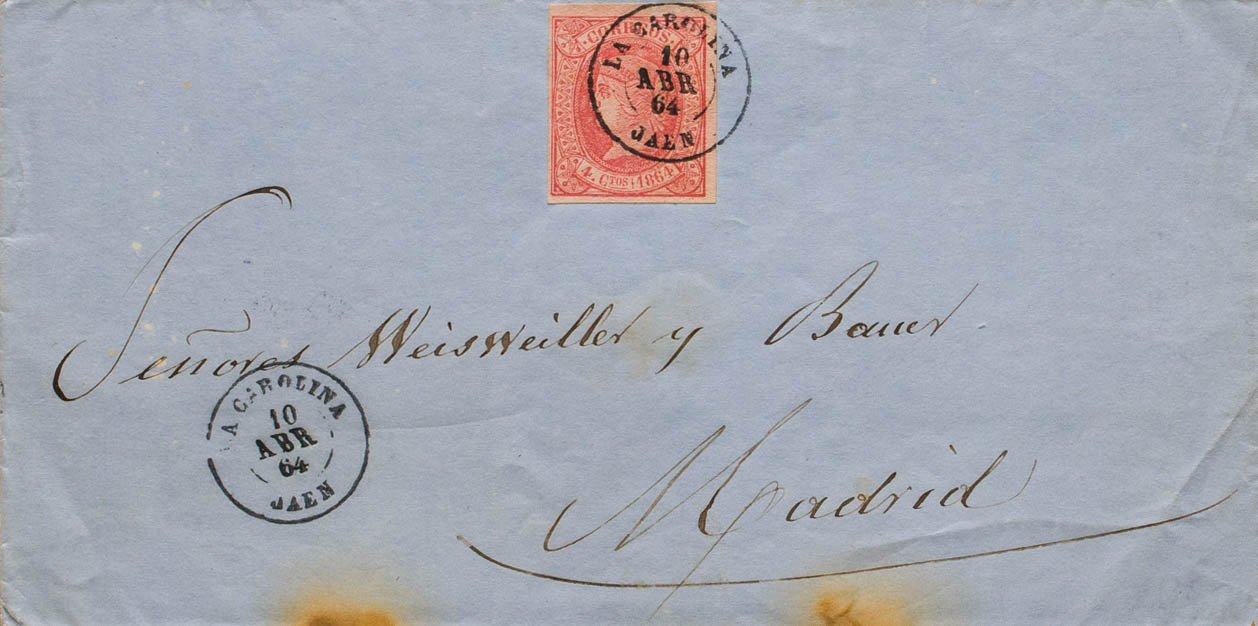 CORREOS.
LA CAROLINA
10
ABR
64
JAEN
4. CTOS 1864
Señores Weisweiller y Bauer
LA CAROLINA
10
ABR
64
JAEN
Madrid